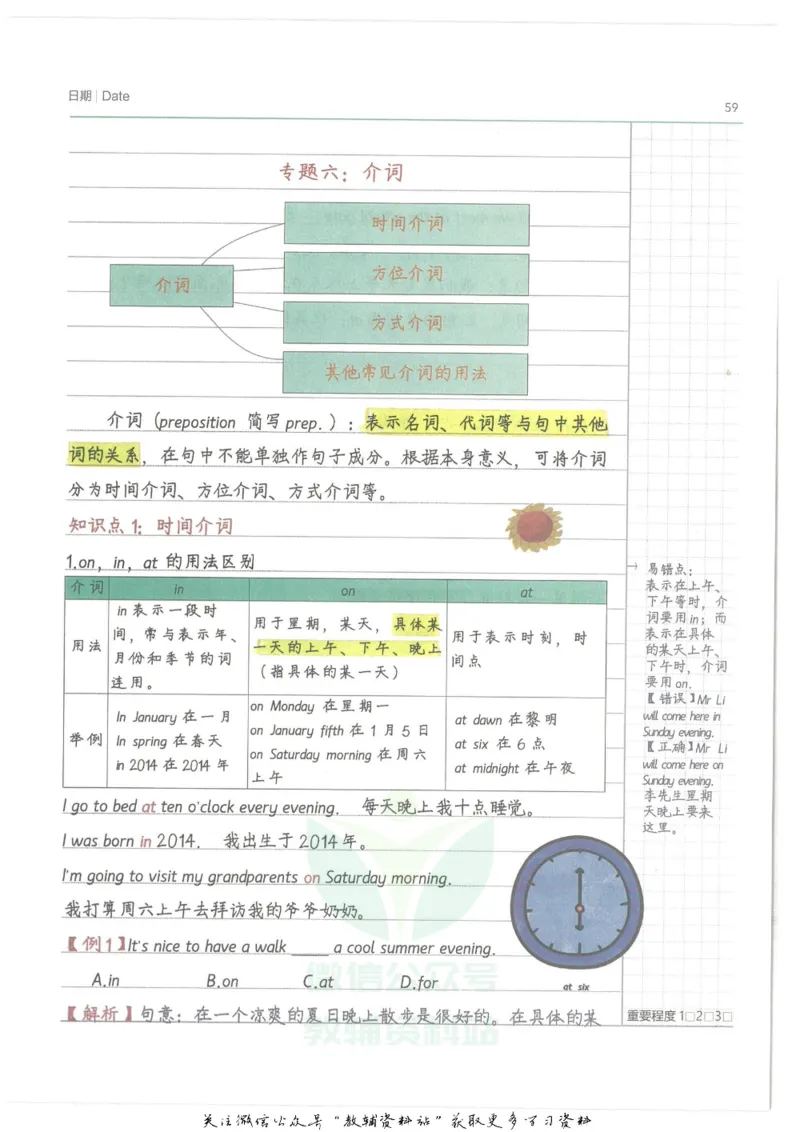 日期 | Date
59
专题六：介词
介词
时间介词
方位介词
方式介词
其他常见介词的用法
介词（preposition 简写 prep.）：表示名词、代词等与句中其他
词的关系，在句中不能单独作句子成分。根据本身意义，可将介词
分为时间介词、方位介词、方式介词等。
知识点 1：时间介词
1.on，in，at 的用法区别
介词 in on at
用法
in 表示一段时
间，常与表示年、
月份和季节的词
连用。
用于星期，某天，具体某
一天的上午、下午、晚上
（指具体的某一天）
用于表示时刻，时
间点
举例
In January 在一月
In spring 在春天
in 2014 在 2014 年
on Monday 在星期一
on January fifth 在 1 月 5 日
on Saturday morning 在周六
上午
at dawn 在黎明
at six 在 6 点
at midnight 在午夜
I go to bed at ten o'clock every evening. 每天晚上我十点睡觉。
I was born in 2014. 我出生于 2014 年。
I'm going to visit my grandparents on Saturday morning.
我打算周六上午去拜访我的爷爷奶奶。
【例1】It's nice to have a walk ____ a cool summer evening.
A.in B.on C.at D.for
at six
【解析】句意：在一个凉爽的夏日晚上散步是很好的。在具体的某
易错点：
表示在上午、
下午等时，介
词要用in；而
表示在具体
的某天上午、
下午时，介词
要用 on.
【错误】Mr Li
will come here in
Sunday evening.
【正确】Mr Li
will come here on
Sunday evening.
李先生星期
天晚上要来
这里。
重要程度 1□2□3□
微信公众号
教辅资料站
关注微信公众号“教辅资料站”获取更多学习资料